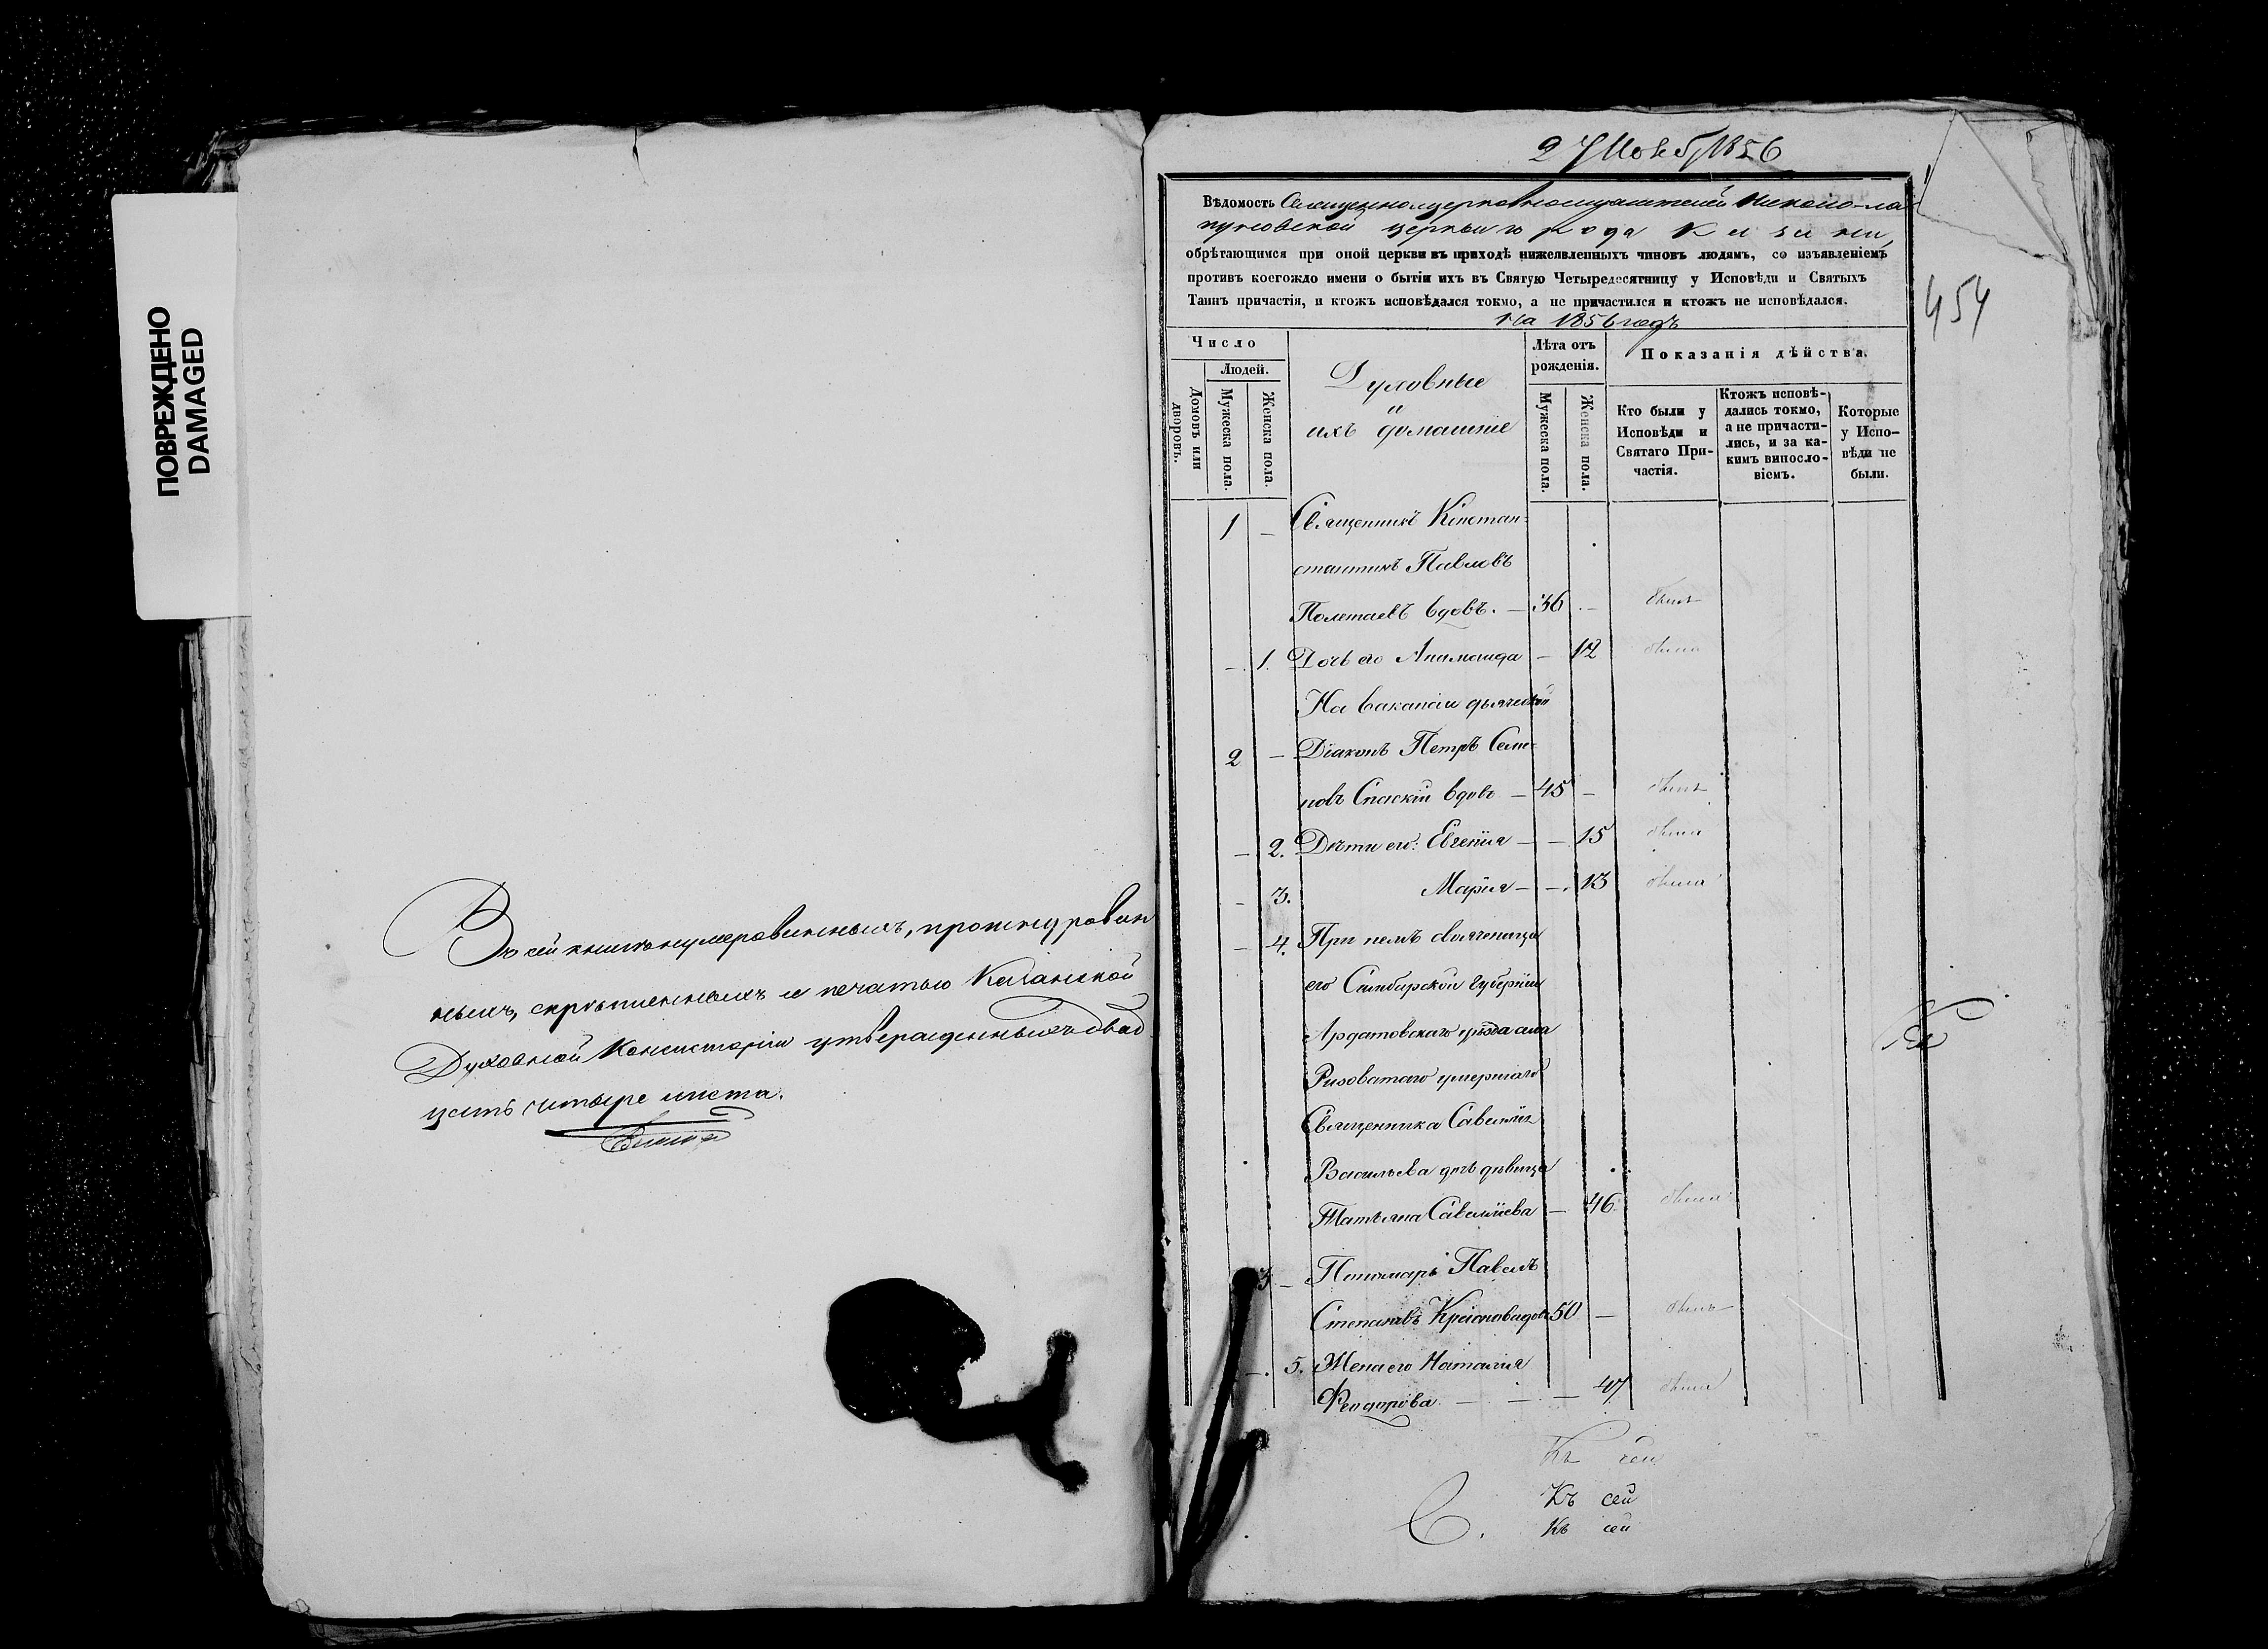 ПОВРЕЖДЕНО
DAMAGED
Въ сей книгѣ нумерованныхъ, прошнурован
ныхъ, скрѣпленныхъ и печатью Казанской
Духовной Консисторіи утвержденныхъ двад
цать четыре листа.
27 Нояб. 1856
454
Вѣдомость Священноцерковнослужителей Николо-ля
пуновской церкви города Казани,
обрѣтающимся при оной церкви въ приходѣ нижеявленныхъ чиновъ людямъ, со изъявленіемъ
противъ коегождо имени о бытіи ихъ въ Святую Четыредесятницу у Исповѣди и Святыхъ
Таинъ причастія, и ктожъ исповѣдался токмо, а не причастился и ктожъ не исповѣдался.
На 1856 годъ
Число
Людей.
Домовъ или дворовъ.
Мужеска пола.
Женска пола.
Духовные
и
ихъ домашніе
Лѣта отъ рожденія.
Мужеска пола.
Женска пола.
Показанія дѣйства.
Кто были у Исповѣди и Святаго При-частія.
Ктожъ исповѣ-дались токмо, а не причасти-лись, и за ка-кимъ виносло-віемъ.
Которые у Испо-вѣди не были.
1 – Священникъ Констан-
стантинъ Павловъ
Полетаевъ вдовъ. – 36 – былъ
– 1. Дочь его Апполинарія – 12 была
На вакансіи дьяческой
2 – Діаконъ Петръ Семе-
новъ Спаскій вдовъ – 45 – былъ
– 2. Дѣти его: Евгенія – – 15 была
– 3. Марія – – 13 была
– 4. При немъ свояченица
его Симбирской губерніи
Ардатовскаго уѣзда села
Ризоватаго умершаго
Священника Савелія
Васильева дочь дѣвица
Татьяна Савеліева – 46 была
3 – Пономарь Павелъ
Степановъ Красновидовъ 50 – былъ
– 5. Жена его Наталія
Феодорова – – – 47 была
Къ сей
Къ сей
С. Къ сей